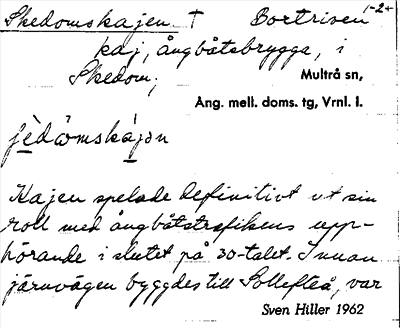 Skedomskajen † Bortriven 1-2+
kaj, ångbåtsbrygga, i
Skedom;
Multrå sn,
Ång. mell. doms. tg, Vrnl. l.
Kajen spelade definitivt ut sin
roll med ångbåtstrafikens upp-
hörande i slutet på 30-talet. Innan
järnvägen byggdes till Sollefteå, var
Sven Hiller 1962